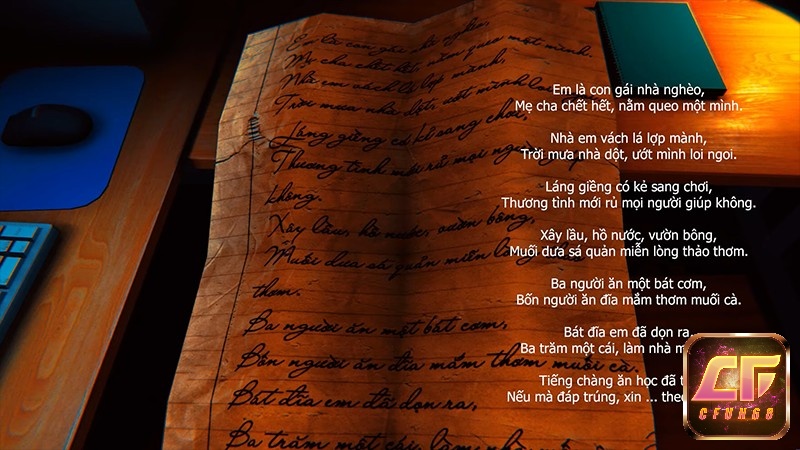 Em là con gái nhà nghèo,
Mẹ cha chết hết, nằm queo một mình.
Nhà em vách lá lợp mành,
Trời mưa nhà dột, ướt mình
Láng giềng có kẻ sang chơi,
Thương tình mới rủ mọi
không.
Xây lầu, hồ nước, vườn bông,
Muối dưa sá quản miễn lòng
thơm.
Ba người ăn một bát cơm,
Bốn người ăn đĩa mắm thơm muối cà.
Bát đĩa em đã dọn ra,
Ba trăm một cái, làm nhà
Em là con gái nhà nghèo,
Mẹ cha chết hết, nằm queo một mình.
Nhà em vách lá lợp mành,
Trời mưa nhà dột, ướt mình loi ngoi.
Láng giềng có kẻ sang chơi,
Thương tình mới rủ mọi người giúp không.
Xây lầu, hồ nước, vườn bông,
Muối dưa sá quản miễn lòng thảo thơm.
Ba người ăn một bát cơm,
Bốn người ăn đĩa mắm thơm muối cà.
Bát đĩa em đã dọn ra,
Ba trăm một cái, làm nhà
Tiếng chàng ăn học đã
Nếu mà đáp trúng, xin ... theo
CF
CFUN68